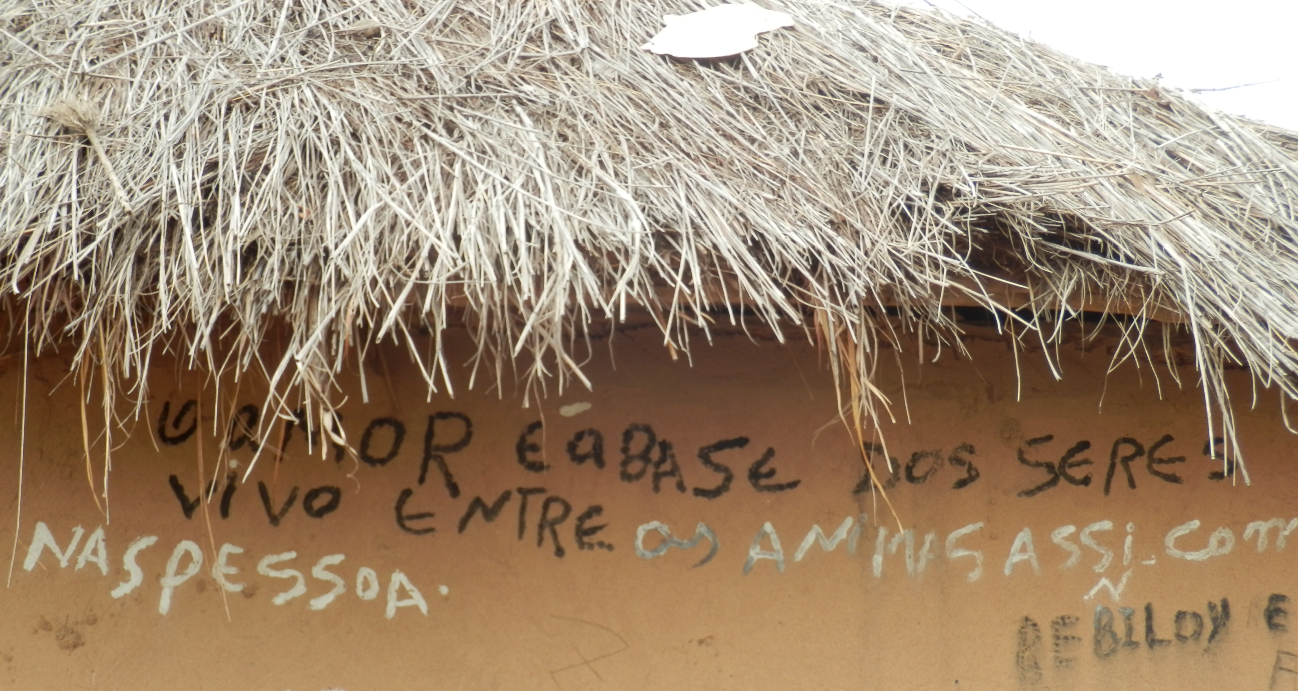 O AMOR E a BASE DOS SERES
VIVO ENTRE OS ANIMAS ASSi. COM
NAS PESSOA.
N
BEBILOY E
F